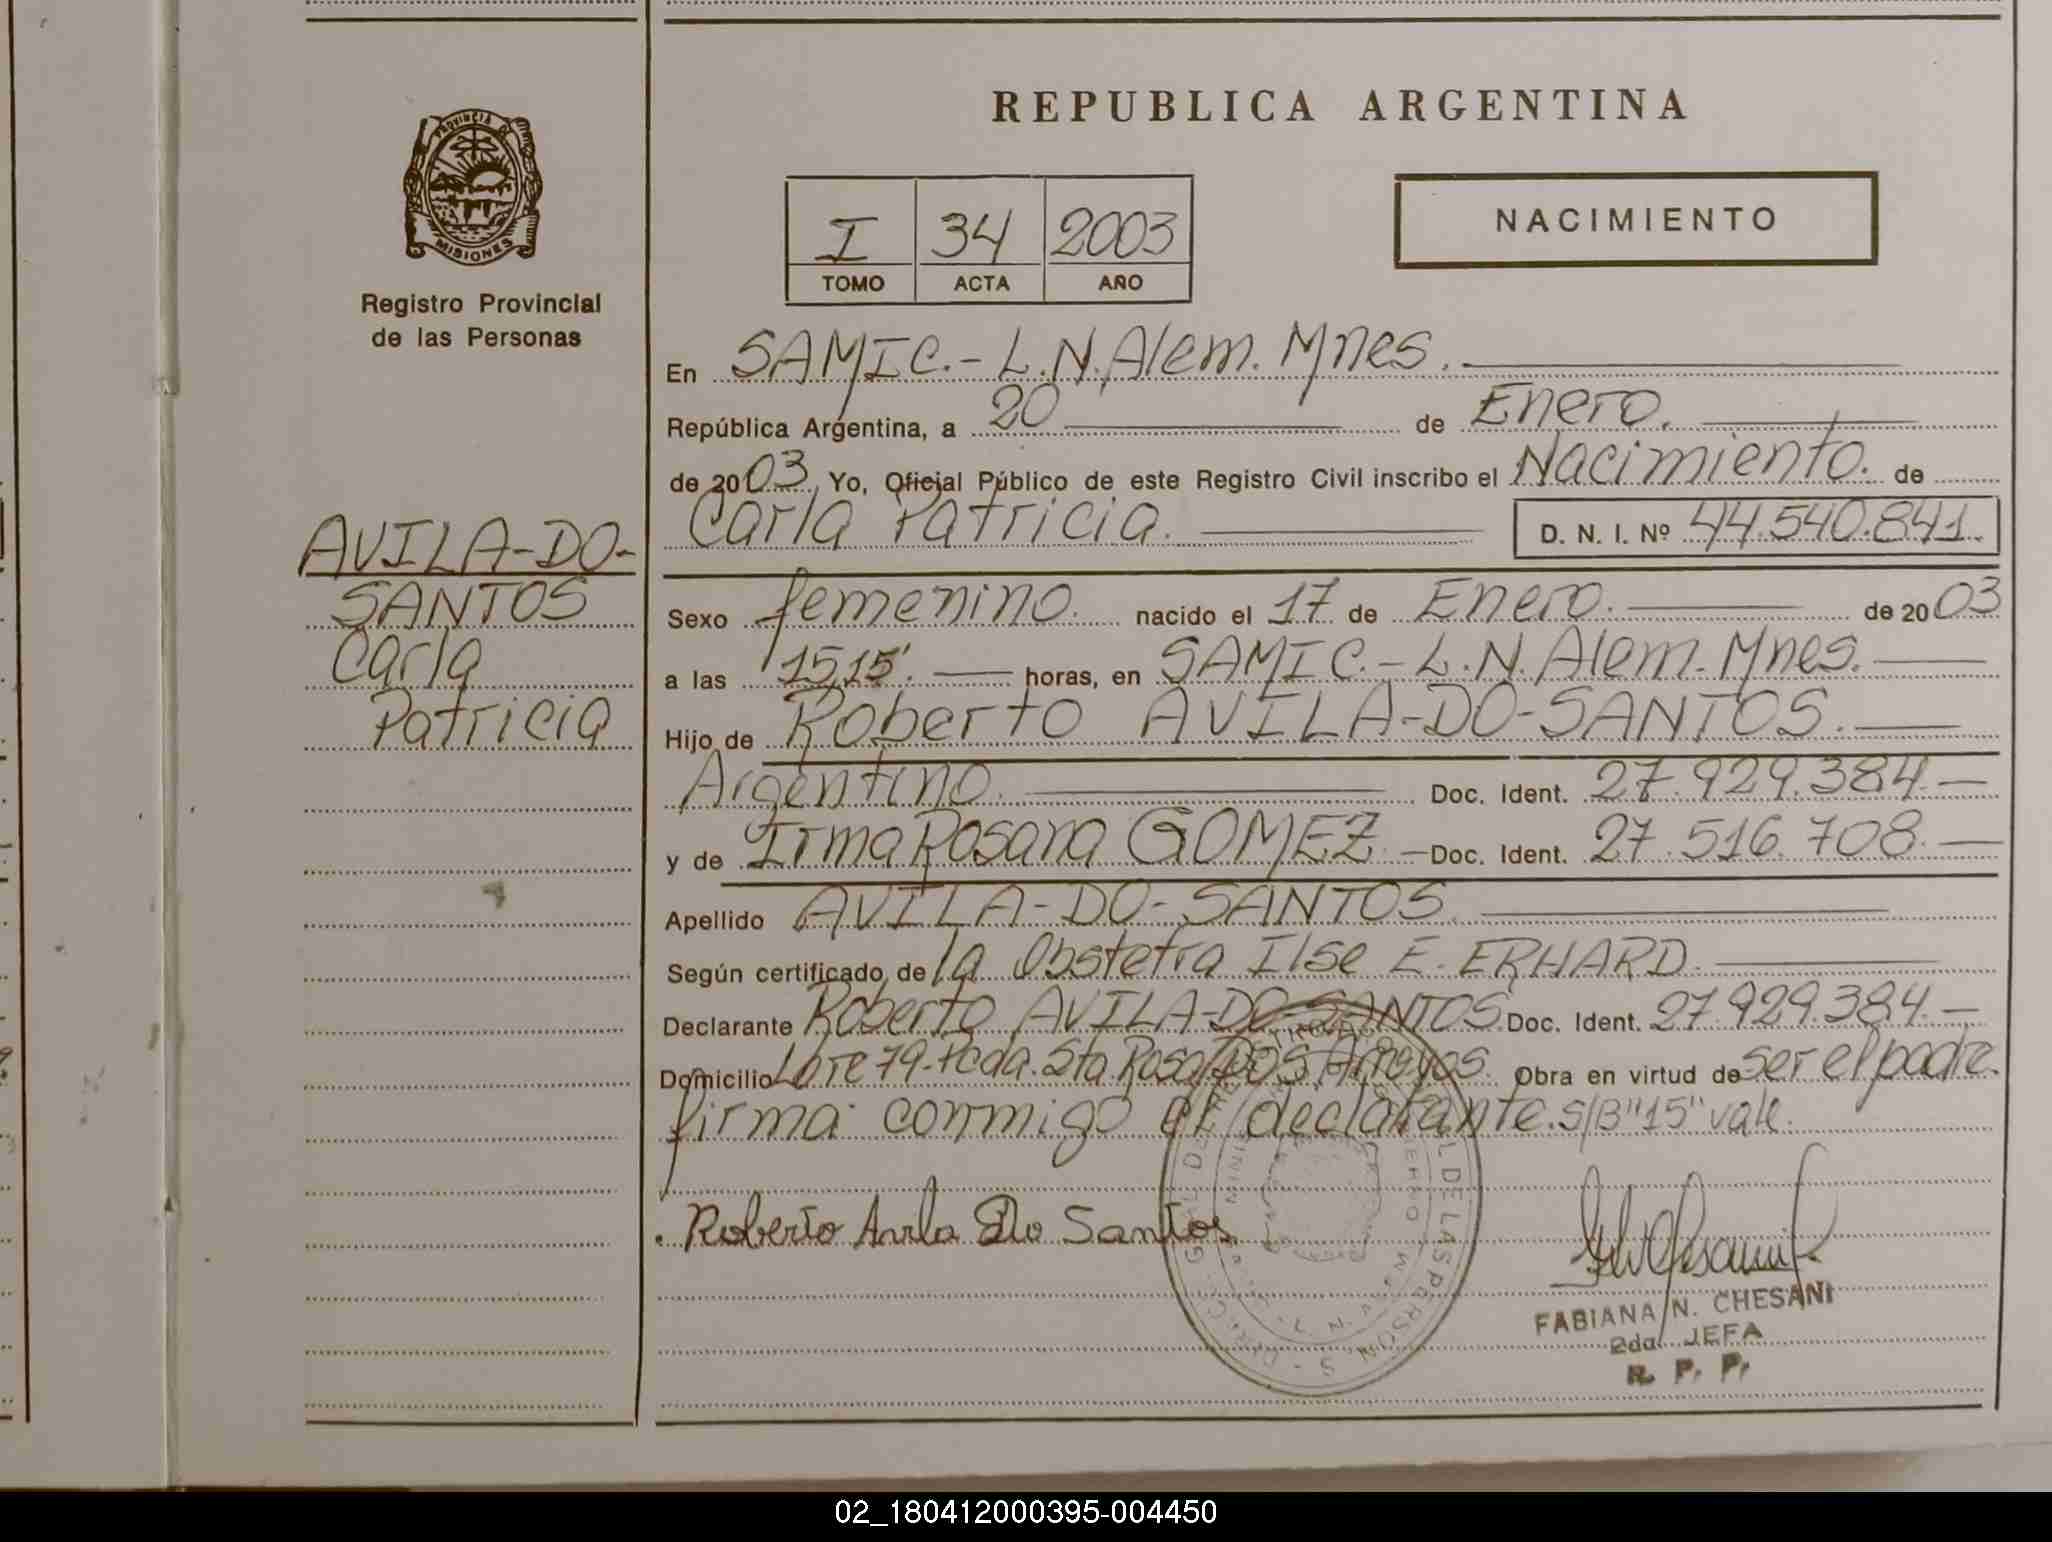 REPUBLICA ARGENTINA
PROVINCIA DE
MISIONES
Registro Provincial
de las Personas
I 34 2003
TOMO ACTA AÑO
NACIMIENTO
En SAMIC.- L.N.Alem. Mnes.
República Argentina, a 20 de Enero.
de 2003 Yo, Oficial Público de este Registro Civil inscribo el Nacimiento. de
Carla Patricia. D. N. I. Nº 44.540.841.
AVILA-DO-
SANTOS
Carla
Patricia
Sexo femenino. nacido el 17 de Enero. de 2003
a las 15,15'. horas, en SAMIC.- L.N. Alem. Mnes.
Hijo de Roberto AVILA-DO-SANTOS.
Argentino. Doc. Ident. 27.929.384.-
y de Irma Rosana GOMEZ.- Doc. Ident. 27.516.708.-
Apellido AVILA-DO-SANTOS.
Según certificado de la Obstetra Ilse E. ERHARD.
Declarante Roberto AVILA-DO-SANTOS. Doc. Ident. 27.929.384.-
Domicilio Lote 79-Pcda. Sta Rosa, DOS Arroyos. Obra en virtud de ser el padre.
firma conmigo el declarante. s/B "15" vale.
Roberto Avila Do Santos
FABIANA N. CHESANI
2da. JEFA
R. P. P.
02_180412000395-004450